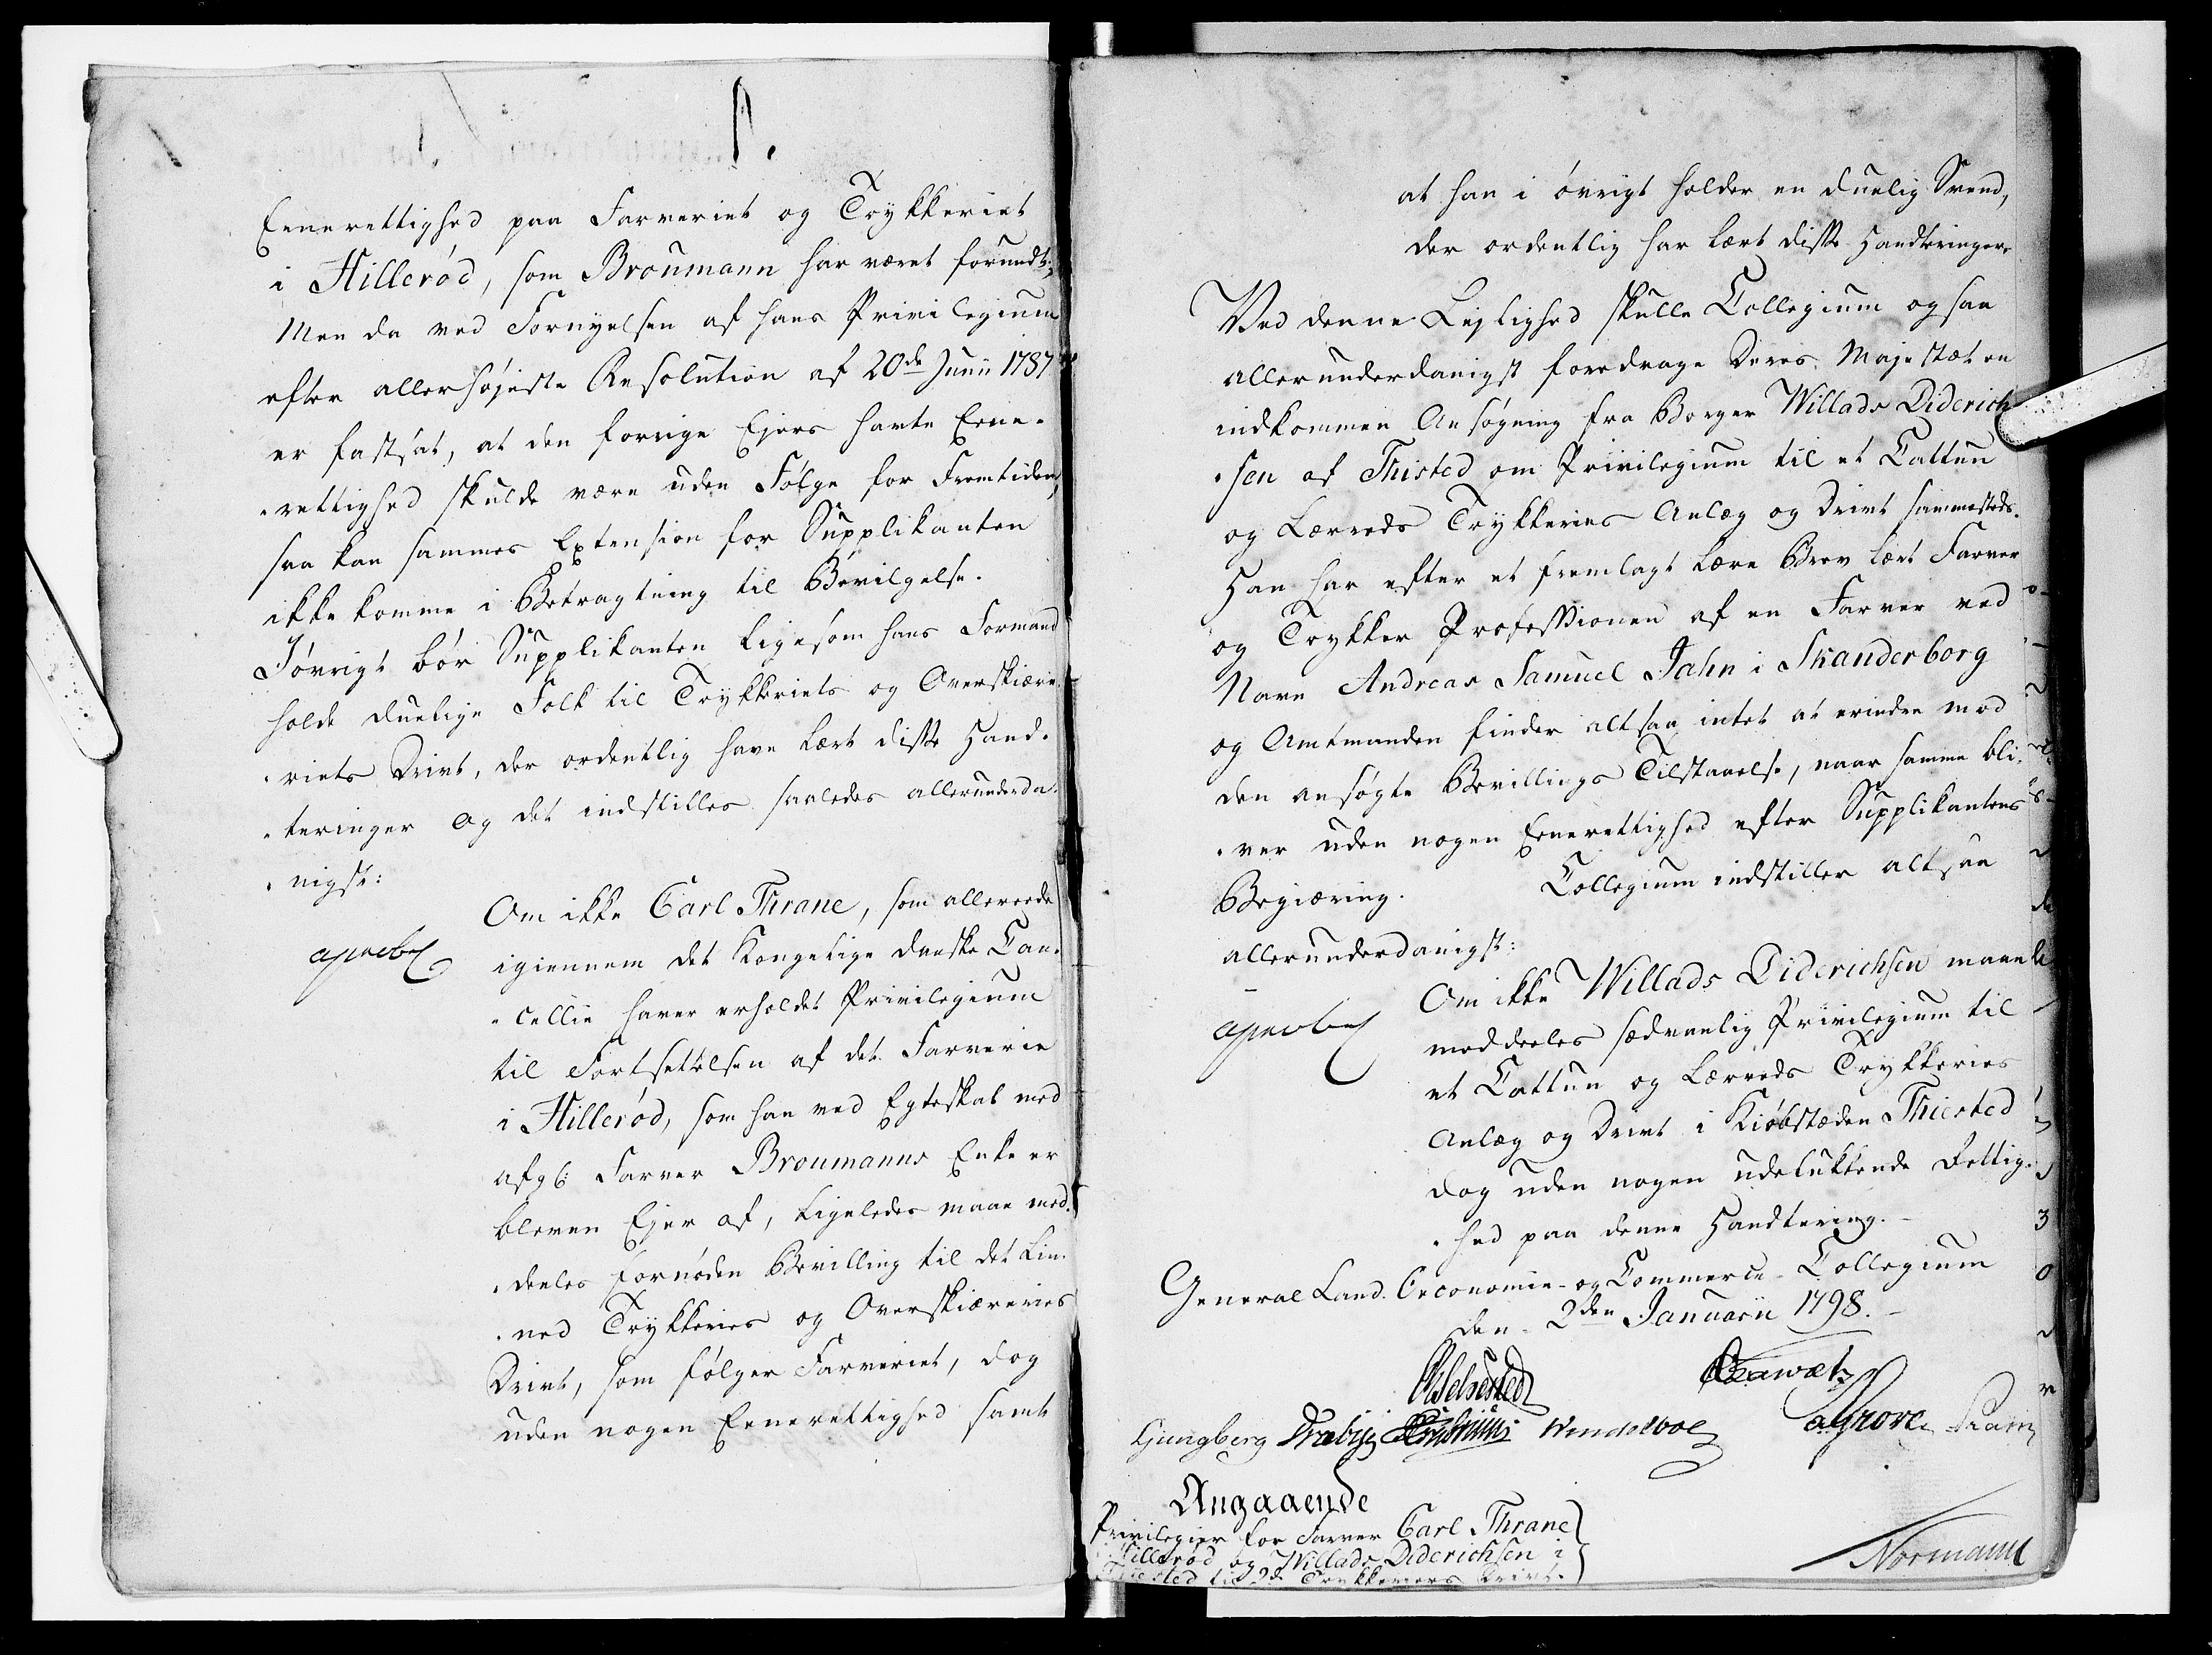 Eenerettighed paa Farveriet og Trykkeriet
i Hillerød, som Broumann har været forundt;
Men da ved Fornyelsen af hans Privilegium
efter allerhøjeste Resolution af 20de Junii 1787
er fastsat, at den forrige Ejers havte Eene-
rettighed skulde være uden Følge for Fremtiden,
saa kan sammes Extension for Supplikanten
ikke komme i Betragtning til Bevilgelse.
Iøvrigt bør Supplikanten ligesom hans Formand
holde duelige Folk til Trykkeriets og Overskiære-
riets Drivt, der ordentlig have lært disse Hand-
teringer og det indstilles saaledes allerunderda-
nigst:
Om ikke Carl Thrane, som allereede
approberes
igiennem det Kongelige danske Can-
cellie haver erholdet Privilegium
til Fortsetelsen af det Farverie
i Hillerød, som han ved Egteskab med
afg: Farver Broumanns Enke er
bleven Ejer af, ligeledes maae med-
deeles fornøden Bevilling til det Lin-
ned Trykkeries og Overskiæreries
Drivt, som følger Farveriet, dog
uden nogen Eenerettighed samt
at han i øvrigt holder en duelig Svend,
der ordentlig har lært disse Handteringer.
Ved denne Lejlighed skulle Collegium ogsaa
allerunderdanigst foredrage Deres Majestæt en
indkommen Ansøgning fra Borger Willads Diderich-
sen af Thisted om Privilegium til et Cattun
og Lærreds Trykkeries Anlæg og Drivt sammesteds.
Han har efter et fremlagt Lære Brev lært Farver
og Trykker Professionen af en Farver ved
Navn Andreas Samuel Jahn i Skanderborg
og Amtmanden finder altsaa intet at erindre mod
den ansøgte Bevillings Tilstaaelse, naar samme bli-
ver uden nogen Eenerettighed efter Supplikantens
Begiæring. Collegium indstiller altsaa
allerunderdanigst:
Om ikke Willads Diderichsen maae
approberes
meddeeles sædvanlig Privilegium til
et Cattun og Lærreds Trykkeries
Anlæg og Drivt i Kiøbstæden Thiested
dog uden nogen udelukkende Rettig-
hed paa denne Handtering.
General Land-Oeconomie- og Commerce-Collegium
den 2den Januarii 1798.
Ljungberg Wendelboe
Normann
Angaaende
Privilegier for Farver Carl Thrane
i Hillerød og Willads Diderichsen i
Thisted til 2de Trykkeriers Drivt.